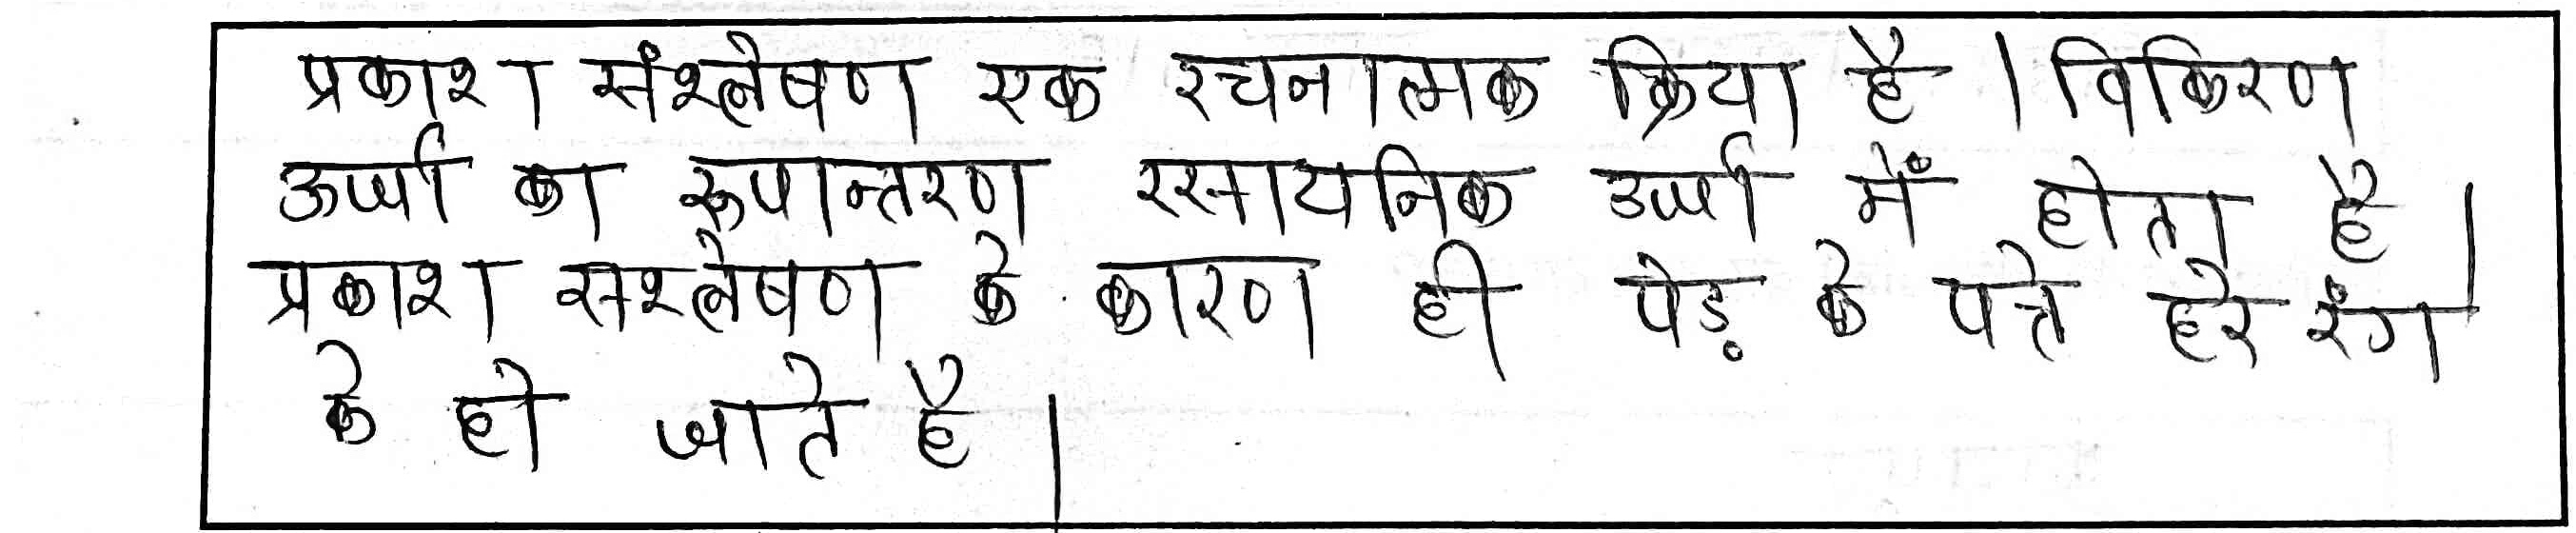 प्रकाश संश्लेषण एक रचनात्मक क्रिया है । विकिरण
ऊर्जा का रूपान्तरण रसायनिक उर्जा में होता है ।
प्रकाश सश्लेषण के कारण ही पेड़ के पत्ते हरे रंग
के हो जाते है ।